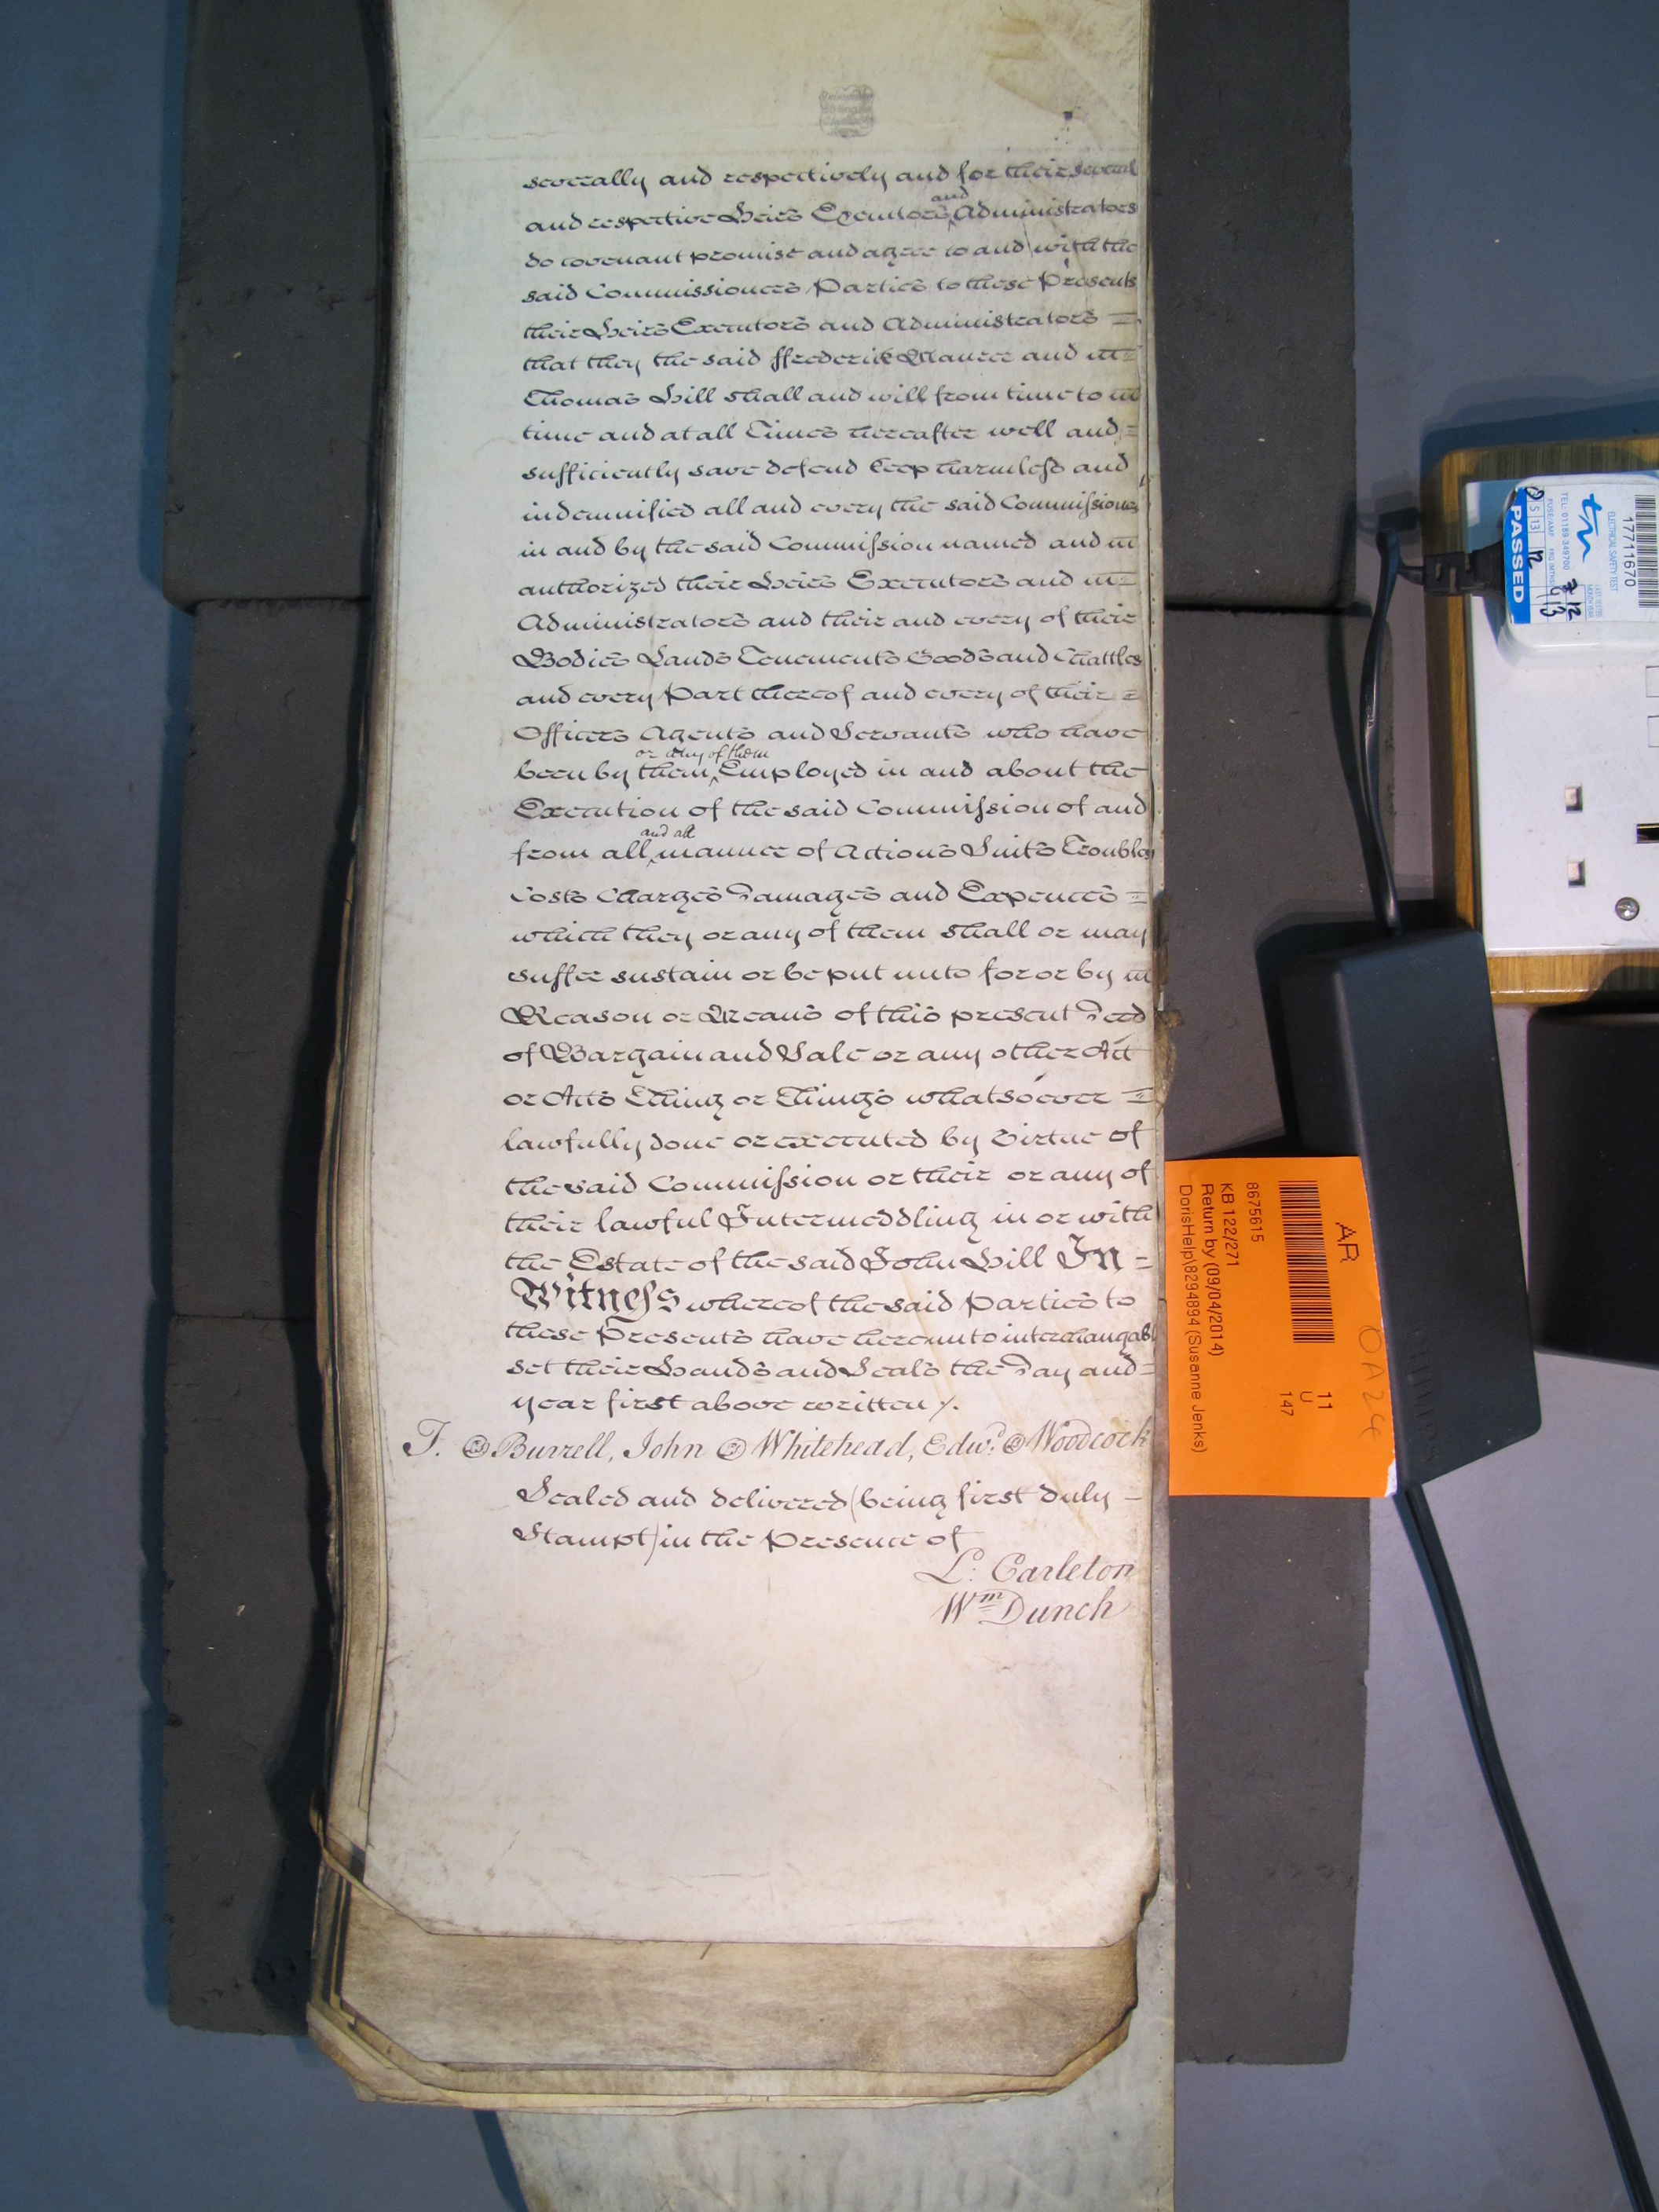 severally and respectively and for their several
and respective Heirs Executors and Administrators
do covenant promise and agree to and with the
said Commissioners Parties to these Presents
their Heirs Executors and Administrators =
that they the said ffrederick Maurer and
Thomas Hill shall and will from time to
time and at all Times hereafter well and =
sufficiently save defend keep harmless and
indemnified all and every the said Commissioners
in and by the said Commission named and
authorized their Heirs Executors and
Administrators and their and every of their
Bodies Lands Tenements Goods and Chattles
and every Part thereof and every of their =
Officers Agents and Servants who have
been by them or any of them Employed in and about the
Execution of the said Commission of and
from all and all manner of Actions Suits Troubles
Costs Charges Damages and Expences =
which they or any of them shall or may
suffer sustain or be put unto for or by
Reason or Means of this present Deed
of Bargain and Sale or any other Act
or Acts Thing or Things whatsoever =
lawfully done or executed by Virtue of
the said Commission or their or any of
their lawful Intermeddling in or with
the Estate of the said John Hill In =
Witness whereof the said Parties to
these Presents have hereunto interchangabl
set their Hands and Seals the Day and =
year first above written /.
T. Burrell, John Whitehead, Edwd. Woodcock
Sealed and delivered (being first duly -
Stampt) in the Presence of
L: Carleton
Wm Dunch
AR
8675615
KB 122/271
Return by (09/04/2014)
DorisHelp\8294894 (Susanne Jenks)
11
U
147
OA24
17711670
ELECTRICAL SAFETY TEST
PASSED